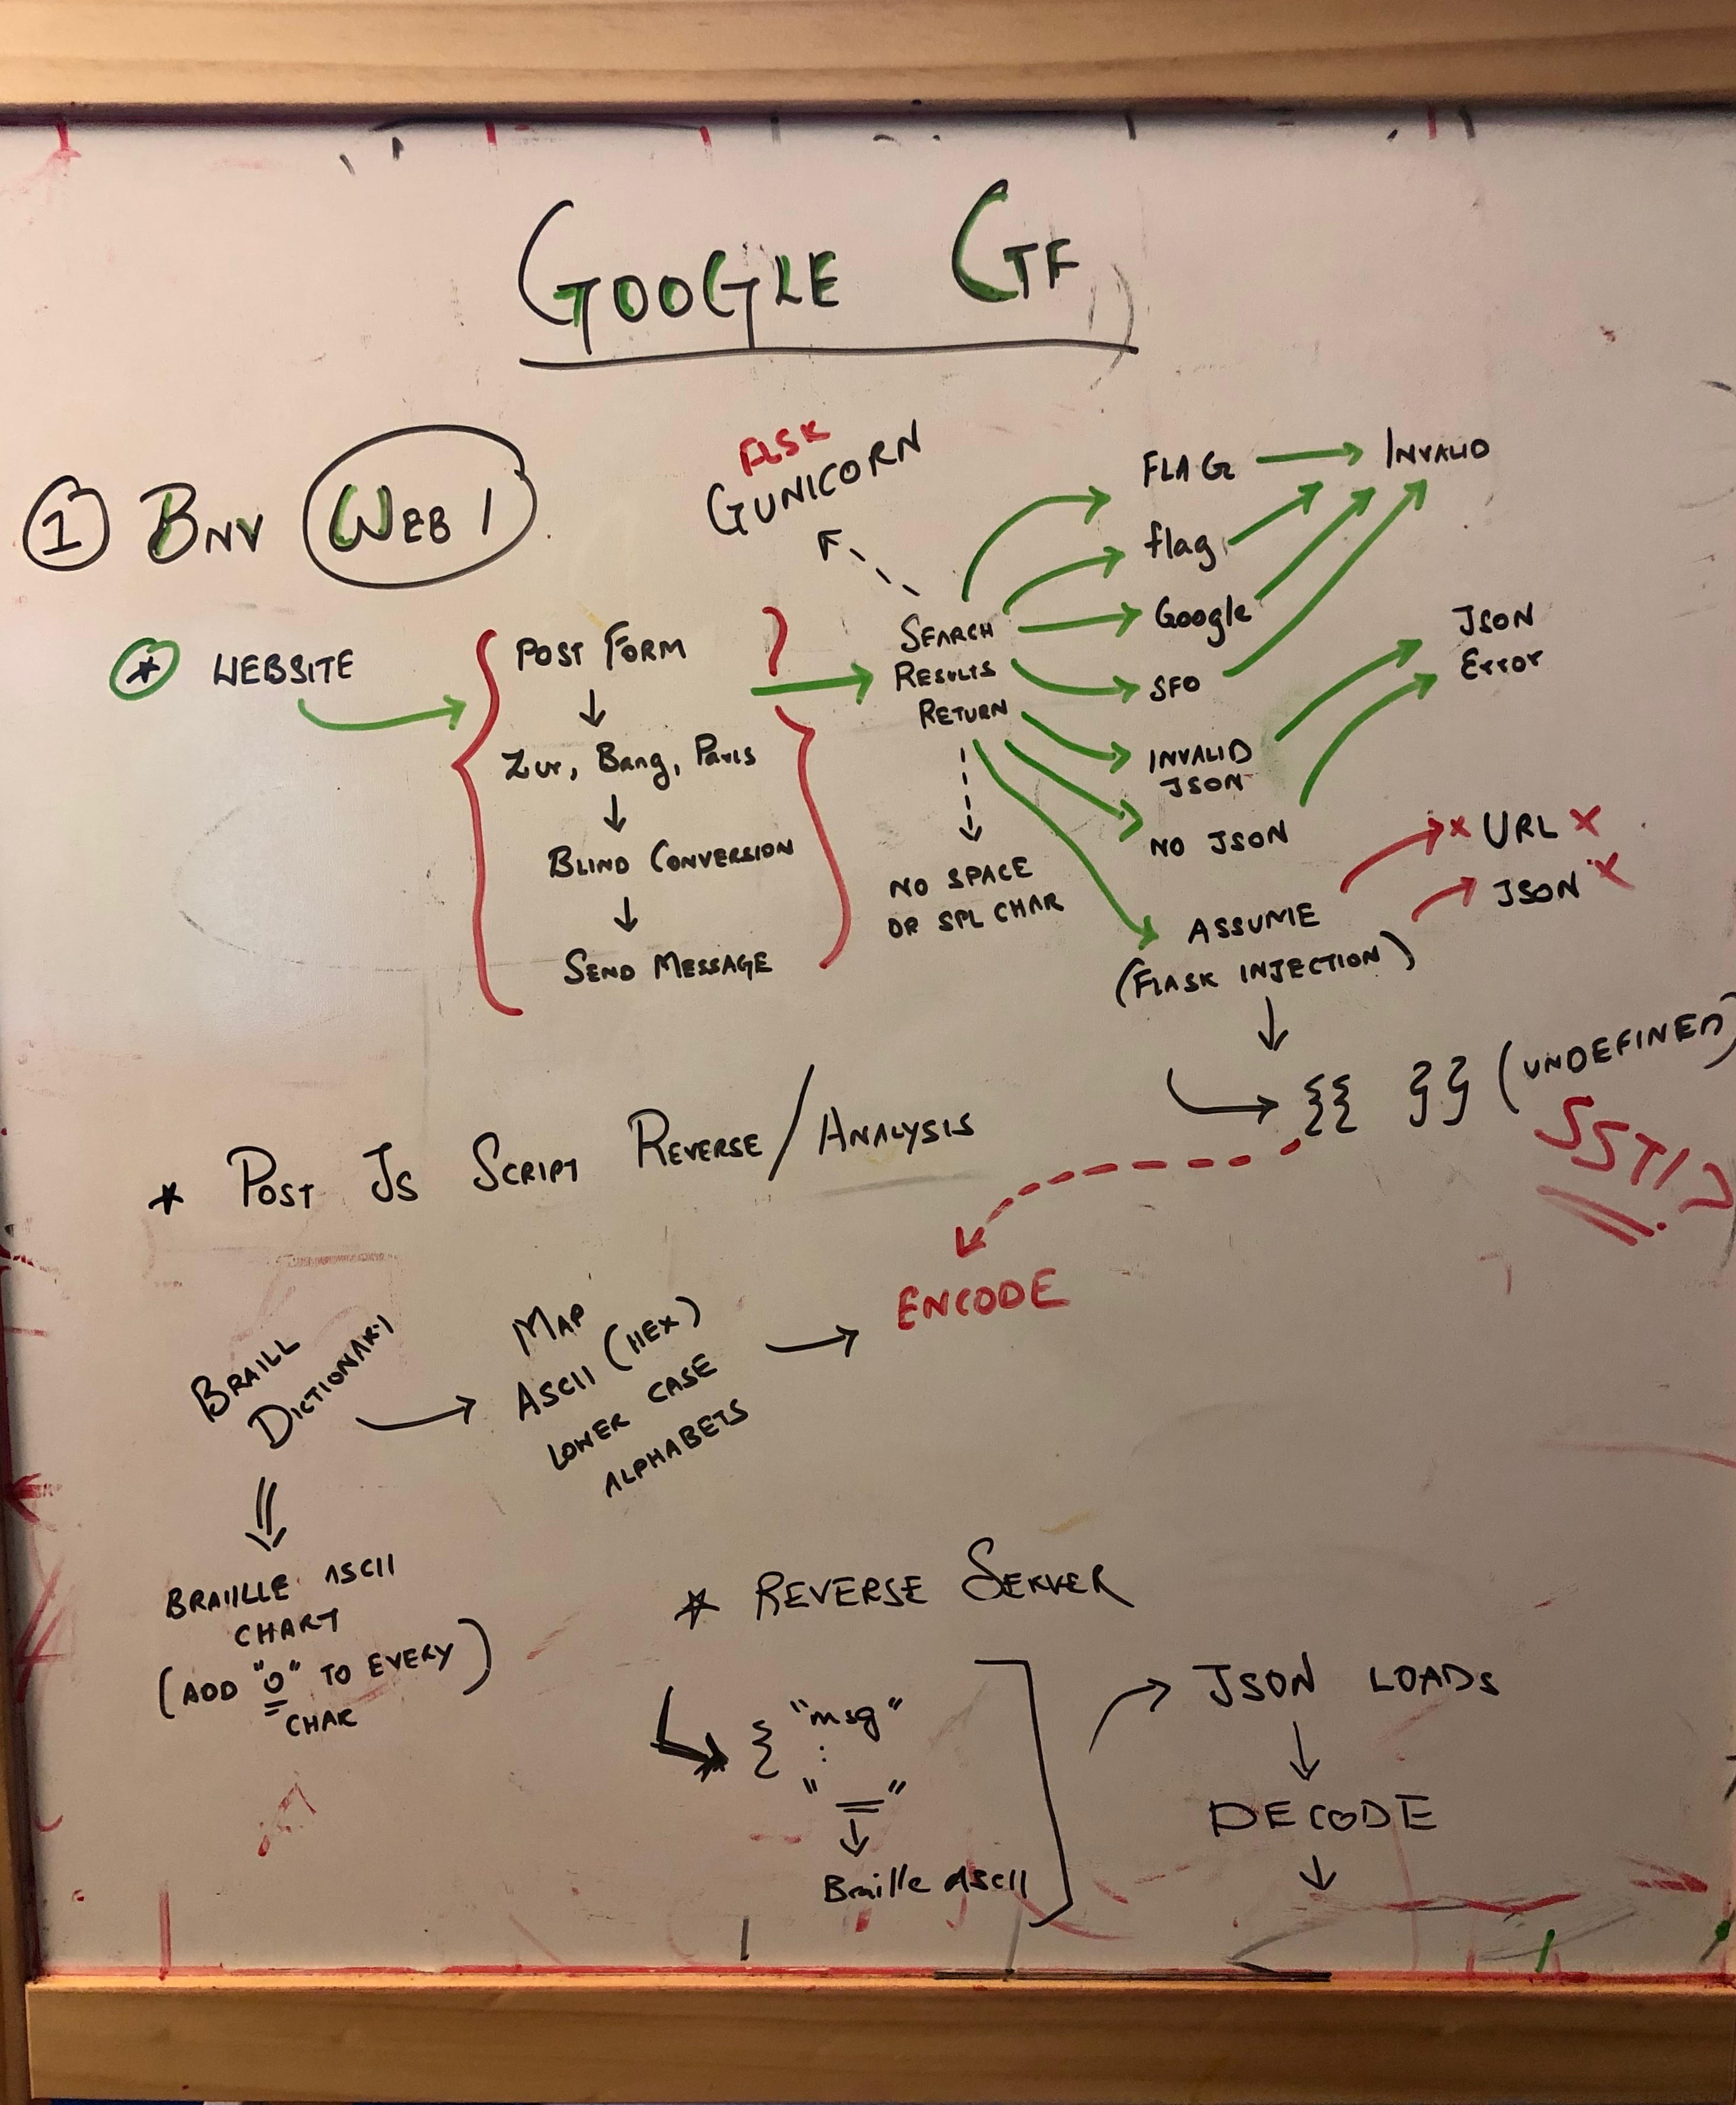 GOOGLE CTF
1 BNV WEB 1
FLSK
GUNICORN
* WEBSITE
POST FORM
Zur, Bang, Paris
BLIND CONVERSION
SEND MESSAGE
SEARCH
RESULTS
RETURN
NO SPACE
OR SPL CHAR
FLAG → INVALID
flag
Google
SFO
INVALID
JSON
NO JSON
JSON
Error
ASSUME
(FLASK INJECTION)
x URL x
JSON x
{{ }} (UNDEFINED)
SSTI?
* POST JS SCRIPT REVERSE/ANALYSIS
BRAILL
DICTIONARY
MAP
ASCII (HEX)
LOWER CASE
ALPHABETS
ENCODE
BRAIILLE ASCII
CHART
(ADD "0" TO EVERY)
CHAR
* REVERSE SERVER
{ "msg"
:
"__"
Braille ASCII
JSON LOADS
DECODE